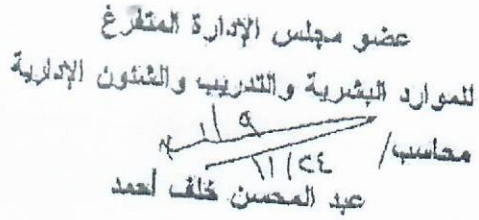 عضو مجلس الإدارة المتفرغ
للموارد البشرية والتدريب والشئون الإدارية
محاسب/
١١/٢٤
عبد المحسن خلف أحمد